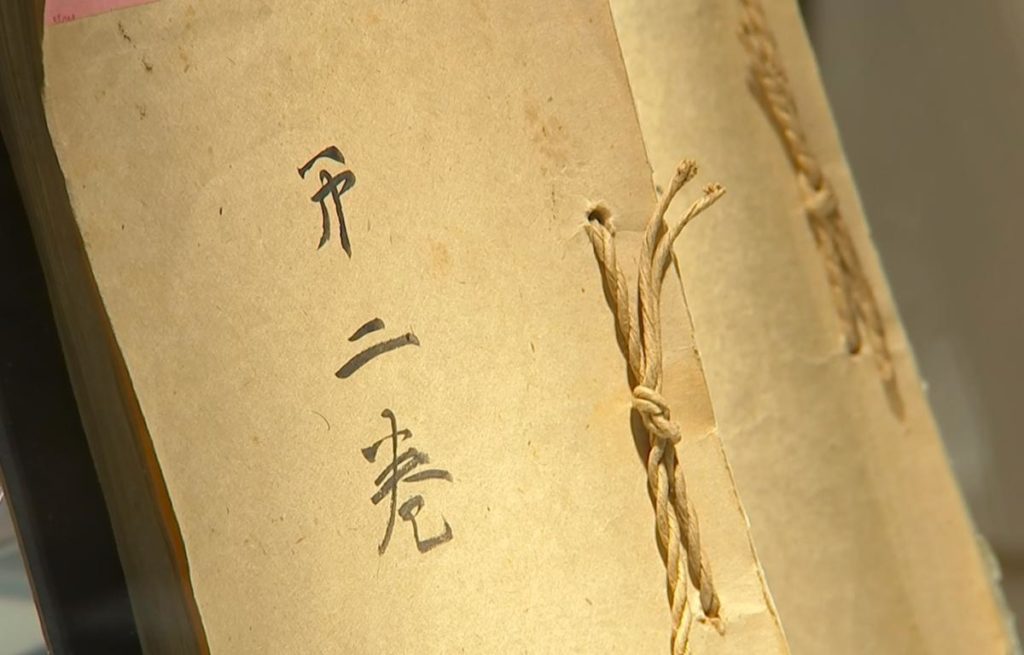 第二巻